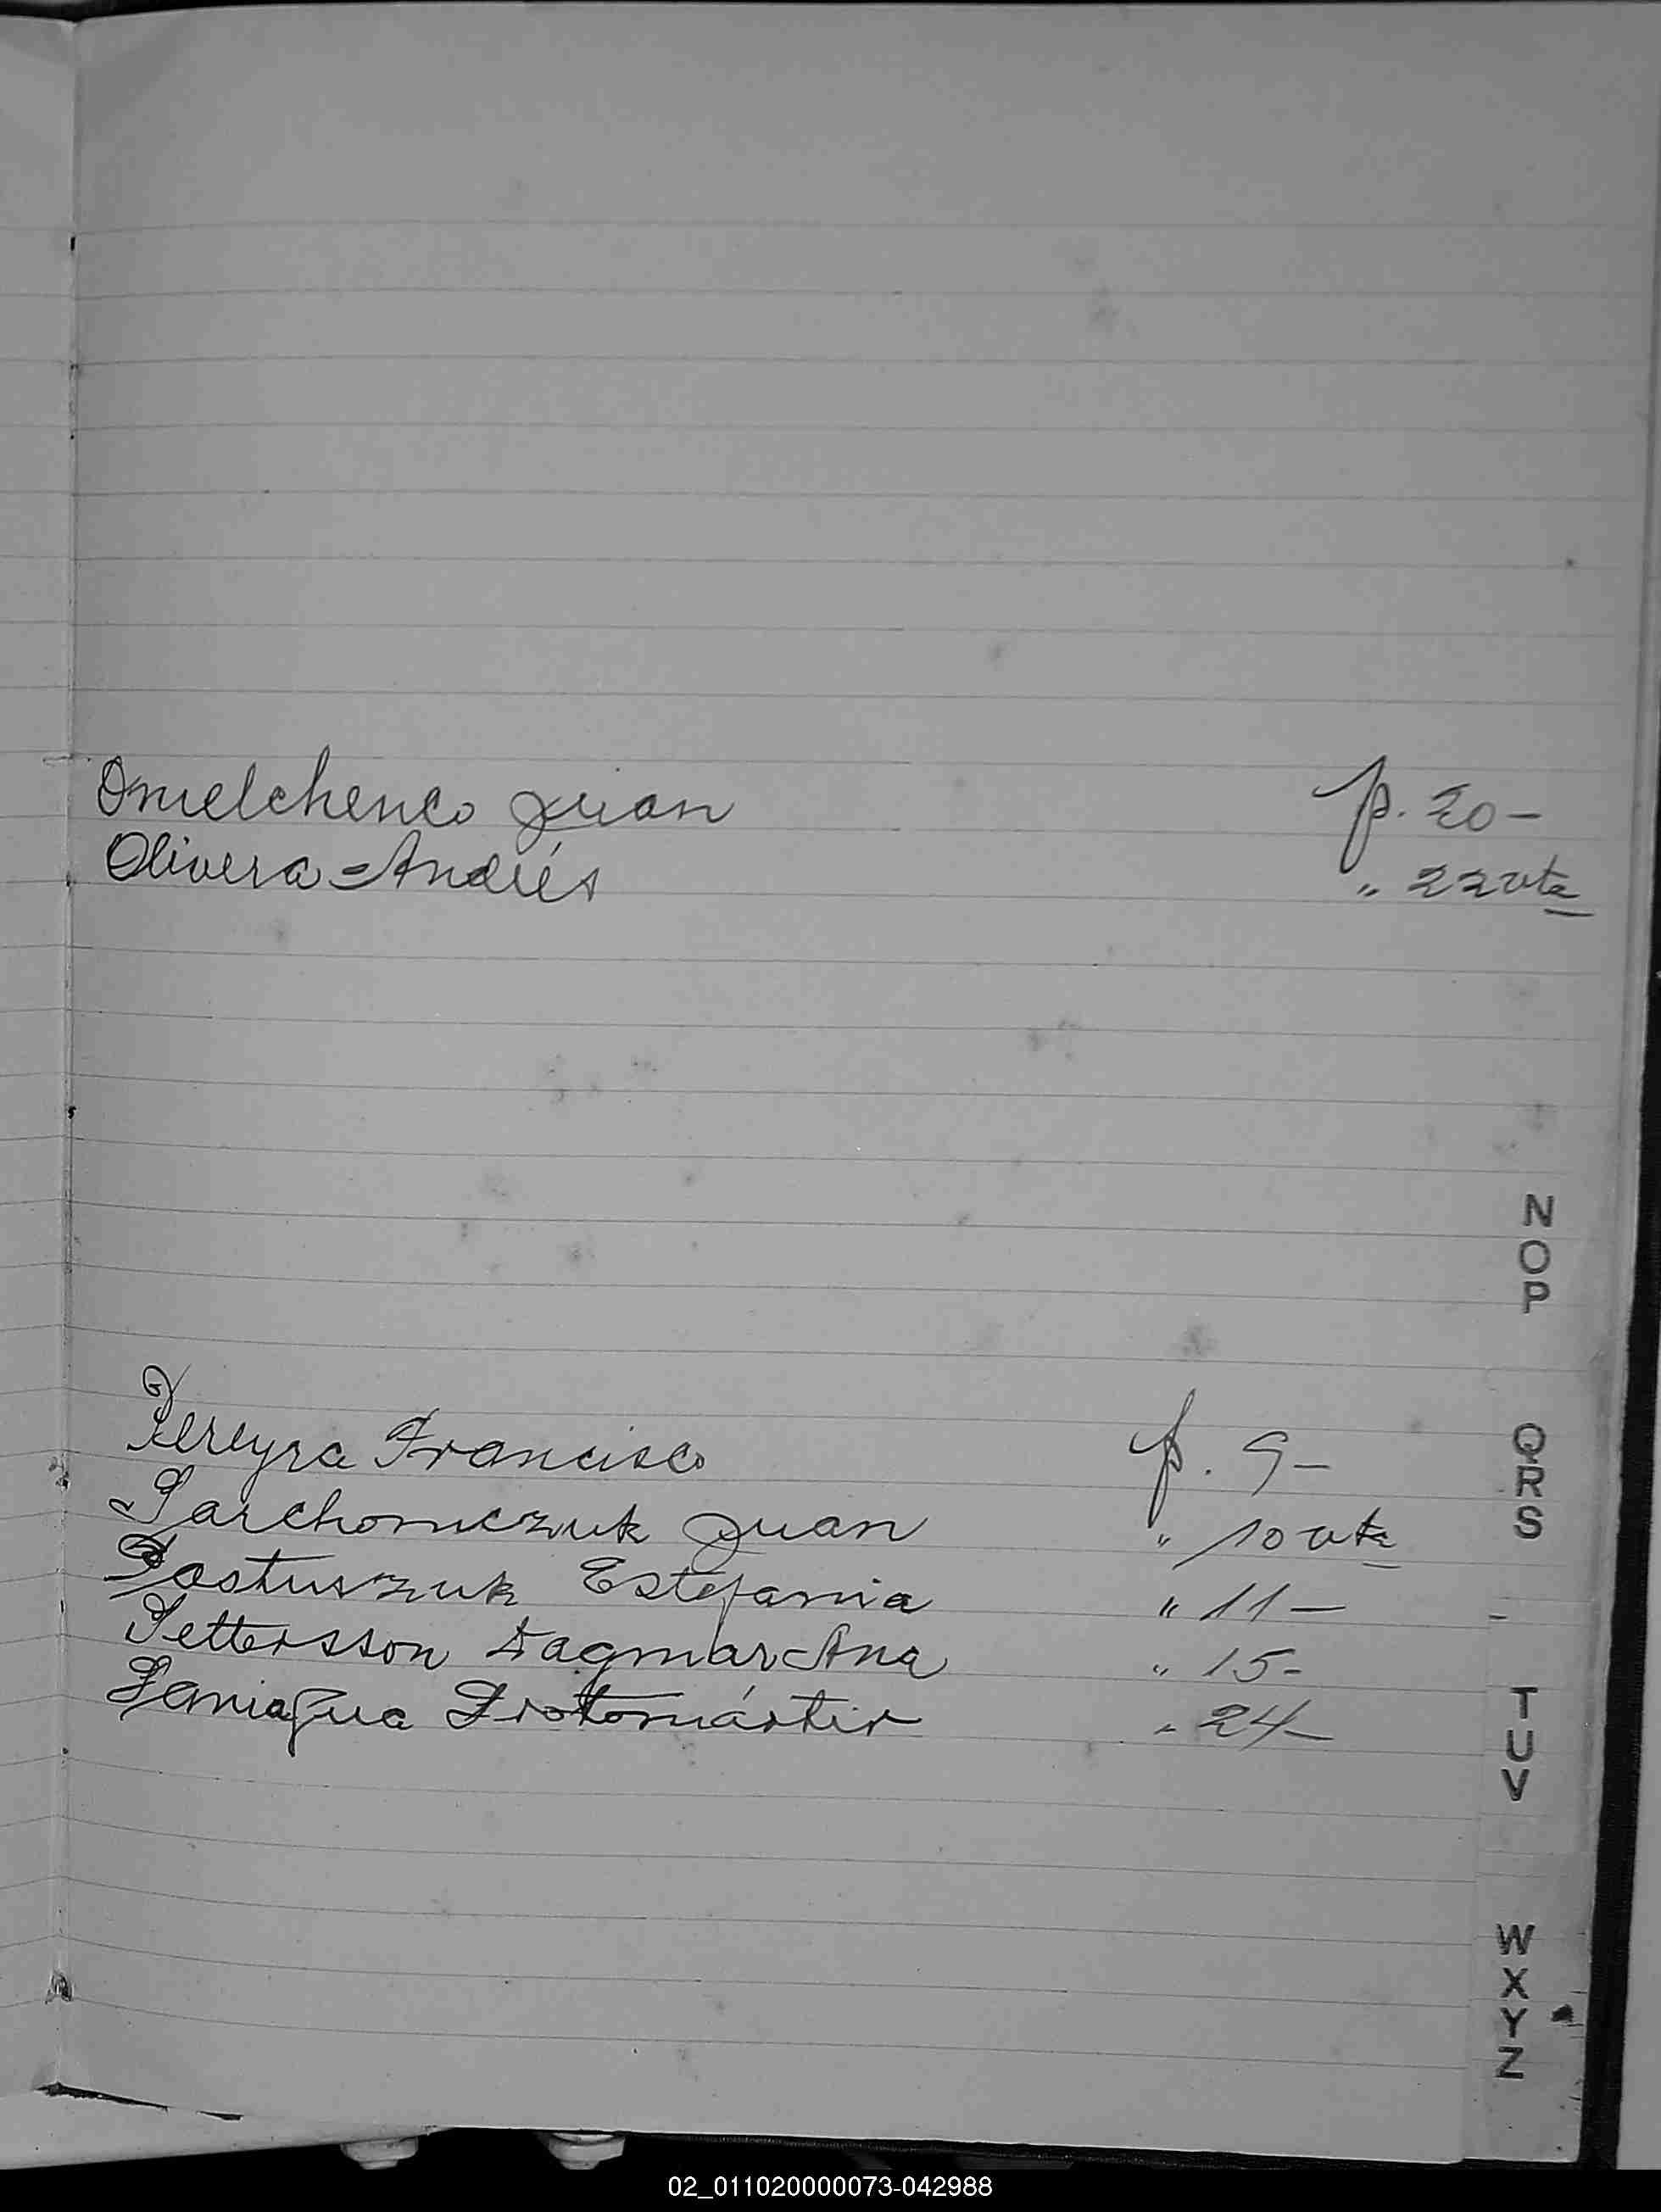 Omelchenco Juan p. 20-
Olivera = Andrés " 22 vta
N
O
P
Pereyra Francisco p. 9-
Q
R
S
Parchomczuk Juan " 10 vta
Pastuszuk Estefania " 11-
Pettersson Dagmar Ana " 15-
Paniagua Protomártir " 24-
T
U
V
W
X
Y
Z
02_011020000073-042988